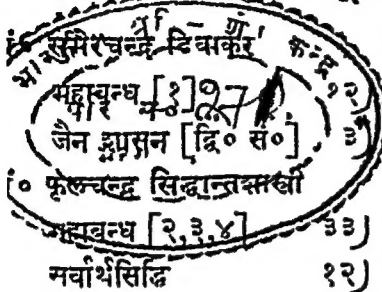 सुमेरचन्द्र दिवाकर
महाबन्ध [१] १२)
जैन शासन [द्वि० सं०] ३)
फूलचन्द्र सिद्धान्तशास्त्री
महाबन्ध [२,३,४] ३३)
सर्वार्थसिद्धि १२)